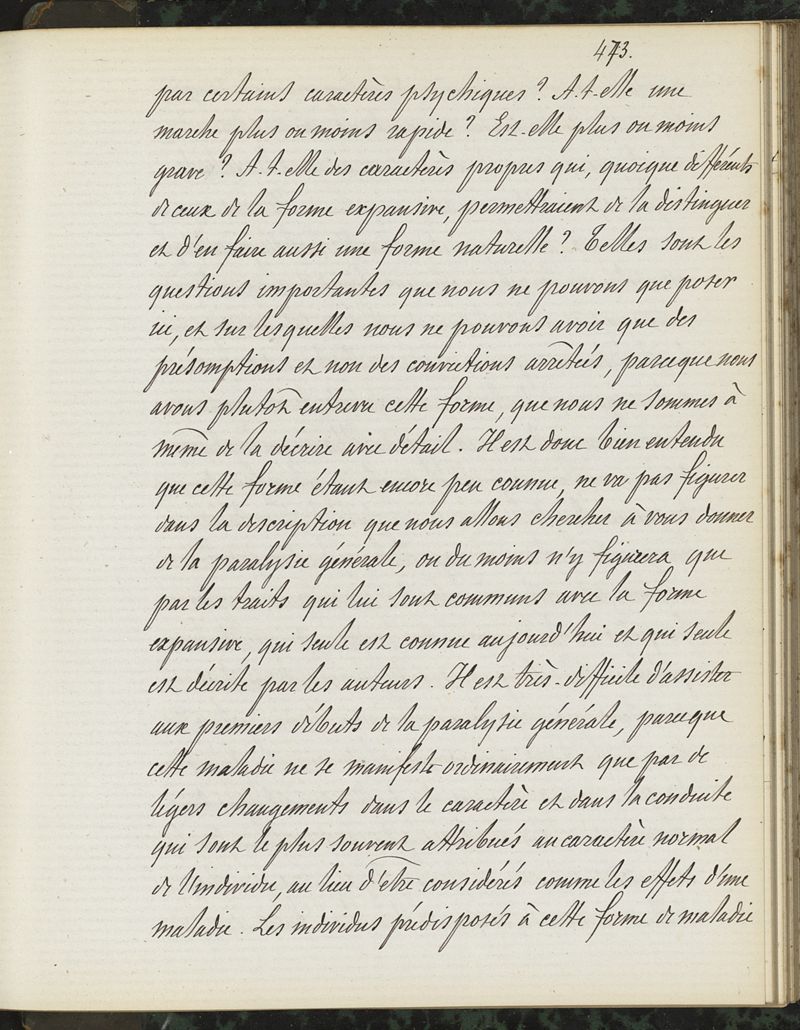 473.
par certains caractères psychiques ? A-t-elle une
marche plus ou moins rapide ? Est-elle plus ou moins
grave ? A-t-elle des caractères propres qui, quoique différents
de ceux de la forme expansive, permettraient de la distinguer
et d'en faire aussi une forme naturelle ? Telles sont les
questions importantes que nous ne pouvons que poser
ici, et sur lesquelles nous ne pouvons avoir que des
présomptions et non des convictions arrêtées, parceque nous
avons plutôt entrevu cette forme, que nous ne sommes à
même de la décrire avec détail. Il est donc bien entendu
que cette forme étant encore peu connue, ne va pas figurer
dans la description que nous allons chercher à vous donner
de la paralysie générale, ou du moins n'y figurera que
par les traits qui lui sont communs avec la forme
expansive, qui seule est connue aujourd'hui et qui seule
est décrite par les auteurs. Il est très-difficile d'assister
aux premiers débuts de la paralysie générale, parceque
cette maladie ne se manifeste ordinairement que par de
légers changements dans le caractère et dans la conduite
qui sont le plus souvent attribués au caractère normal
de l'individu, au lieu d'être considérés comme les effets d'une
maladie. Les individus prédisposés à cette forme de maladie